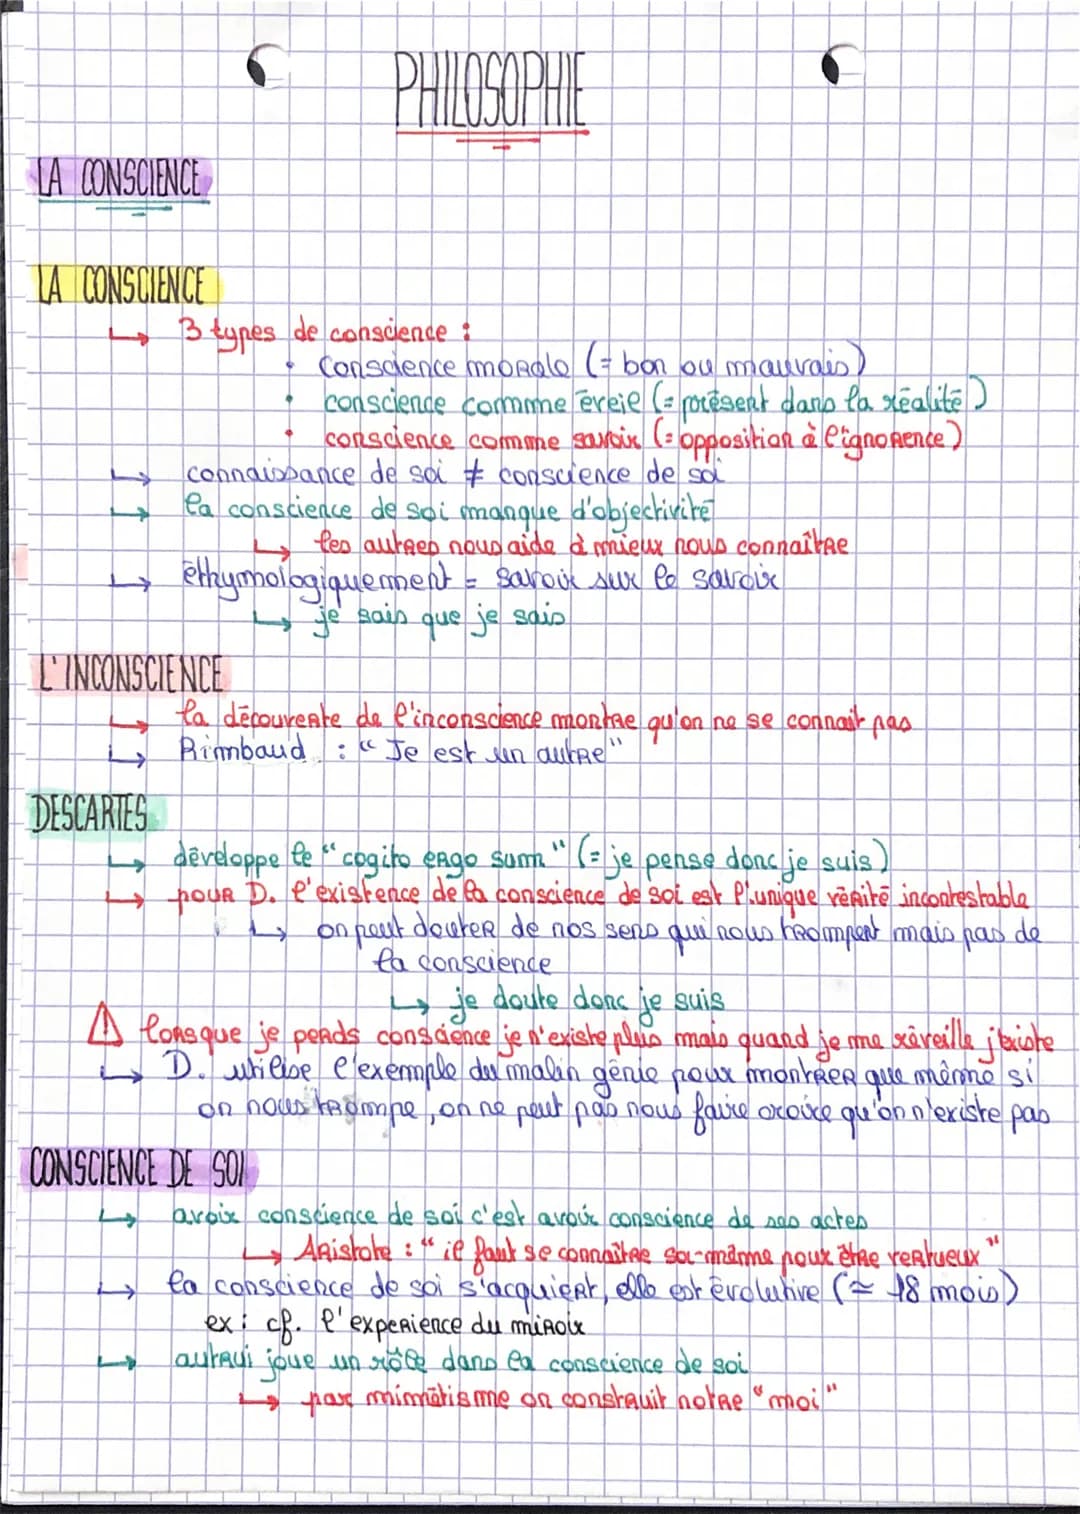 PHILOSOPHIE
LA CONSCIENCE
LA CONSCIENCE
↳ 3 types de conscience :
• Conscience morale (= bon ou mauvais)
• conscience comme éveie (= présent dans la réalité)
• conscience comme savoir (= opposition à l'ignorence)
↳ connaissance de soi ≠ conscience de soi
↳ la conscience de soi manque d'objectivité
↳ les autres nous aide à mieux nous connaître
↳ éthymologiquement = savoir sur le savoir
↳ je sais que je sais
L'INCONSCIENCE
↳ la découverte de l'inconscience montre qu'on ne se connait pas
↳ Rimbaud : "Je est un autre"
DESCARTES
↳ développe le "cogito ergo sum" (= je pense donc je suis)
↳ pour D. l'existence de la conscience de soi est l'unique vérité incontestable
↳ on peut douter de nos sens qui nous trompent mais pas de
la conscience
↳ je doute donc je suis
⚠ lorsque je perds conscience je n'existe plus mais quand je me réveille j'existe
↳ D. utilise l'exemple du malin génie pour montrer que même si
on nous trompe, on ne peut pas nous faire croire qu'on n'existe pas
CONSCIENCE DE SOI
↳ avoir conscience de soi c'est avoir conscience de ses actes
↳ Aristote : "il faut se connaître soi-même pour être vertueux"
↳ la conscience de soi s'acquiert, elle est évolutive (≃ 18 mois)
ex : cf. l'experience du miroir
↳ autrui joue un rôle dans la conscience de soi
↳ par mimétisme on construit notre "moi"